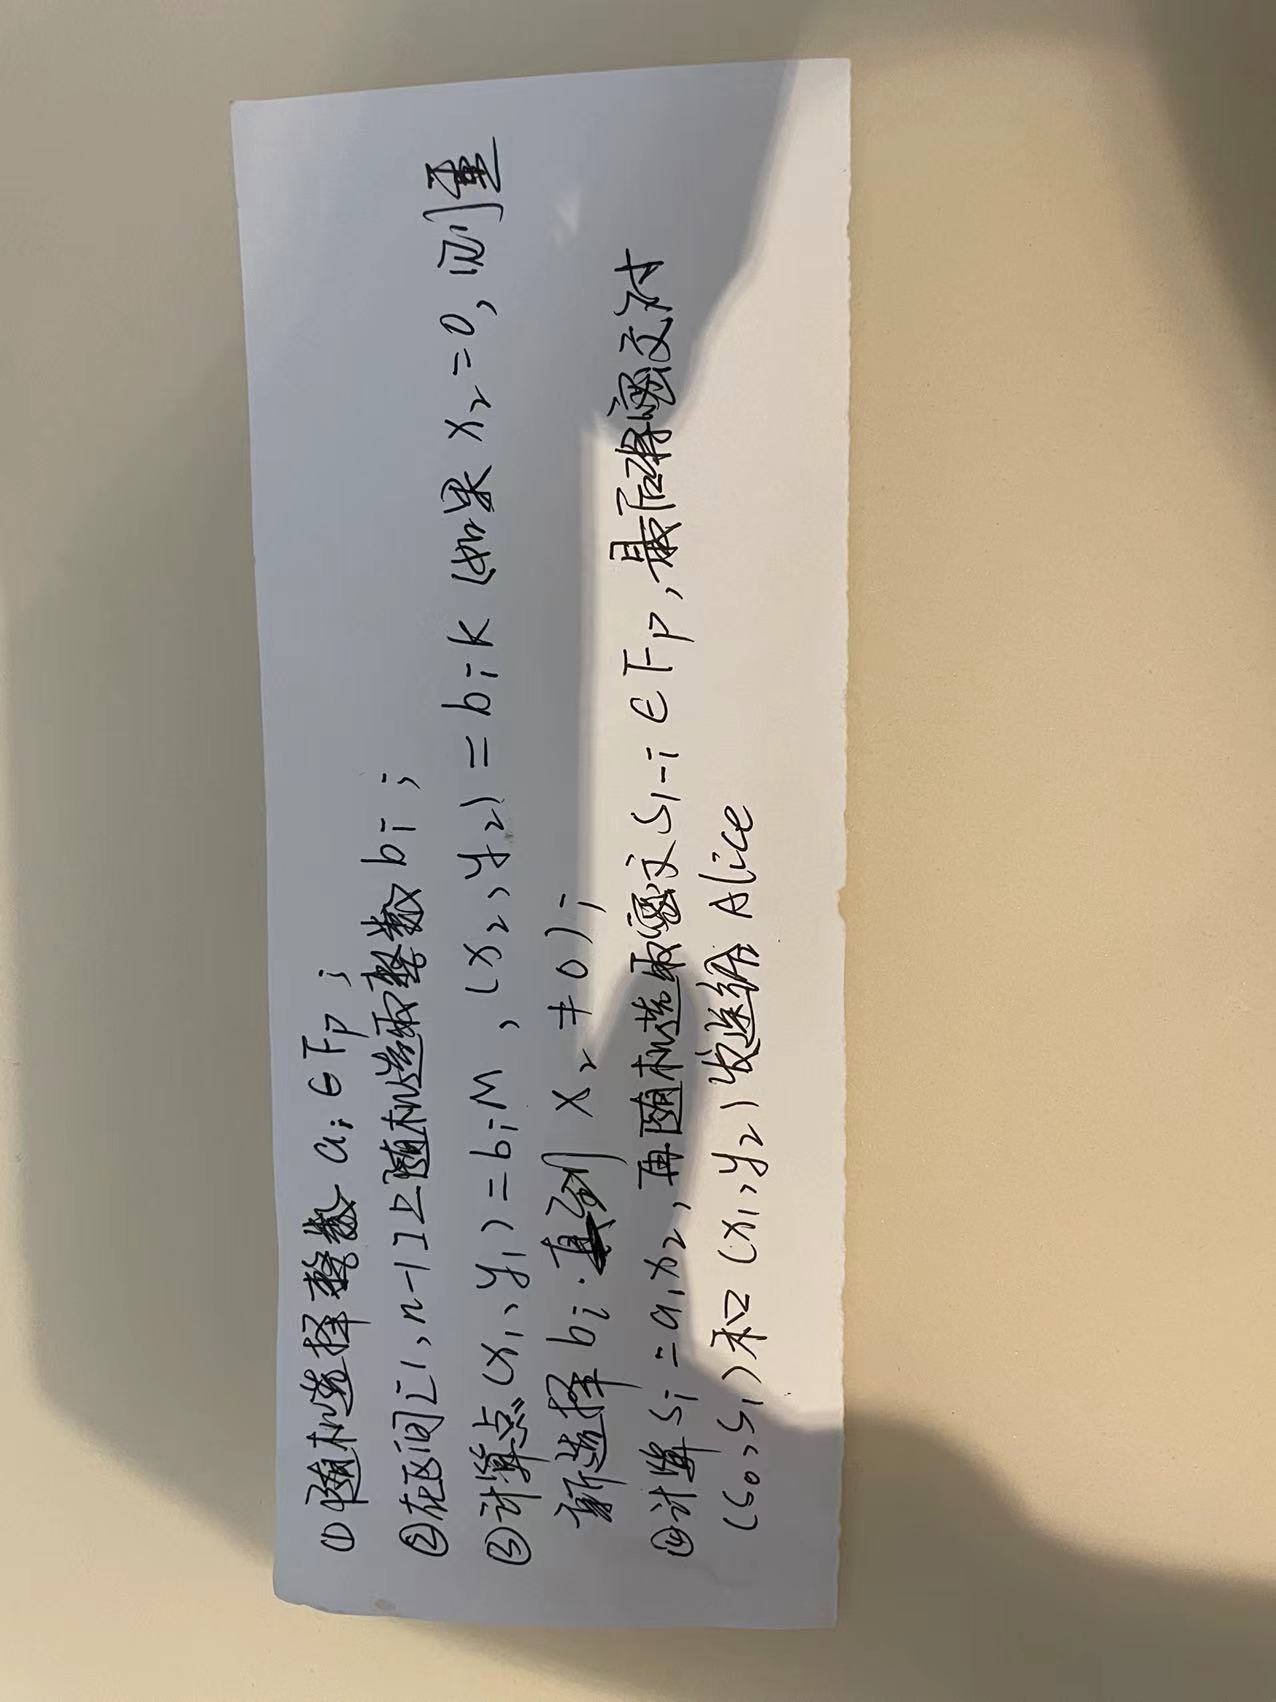 ①随机选择整数 ai∈Fp；
②在区间[1,n-1]上随机选取整数bi；
③计算点(x1,y1)=biM,(x2,y2)=biK(如果 x2=0,则重
新选择bi.直到 x2≠0)；
④计算si=aix2,再随机选取密文s1-i∈Fp,最后将密文对
(s0,s1)和(x1,y2)发送给Alice